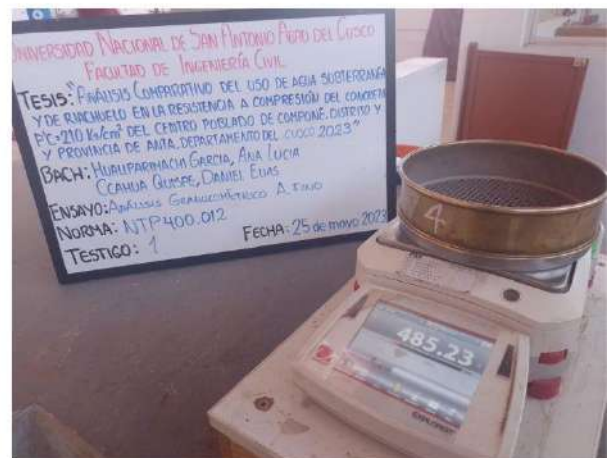 UNIVERSIDAD NACIONAL DE SAN ANTONIO ABAD DEL CUSCO
FACULTAD DE INGENIERÍA CIVIL
TESIS: "ANÁLISIS COMPARATIVO DEL USO DE AGUA SUBTERRANEA
Y DE RIACHUELO EN LA RESISTENCIA A COMPRESIÓN DEL CONCRETO
F'C=210 Kg/cm² DEL CENTRO POBLADO DE COMPONE, DISTRITO Y
PROVINCIA DE ANTA, DEPARTAMENTO DEL CUSCO 2023"
BACH: HUALLPARIMACHI GARCIA, ANA LUCIA
CCAHUA QUISPE, DANIEL ELIAS
ENSAYO: ANÁLISIS GRANULOMÉTRICO A. FINO
NORMA: NTP 400.012
TESTIGO: 1
FECHA: 25 de mayo 2023
4
485.23
EXPLORER